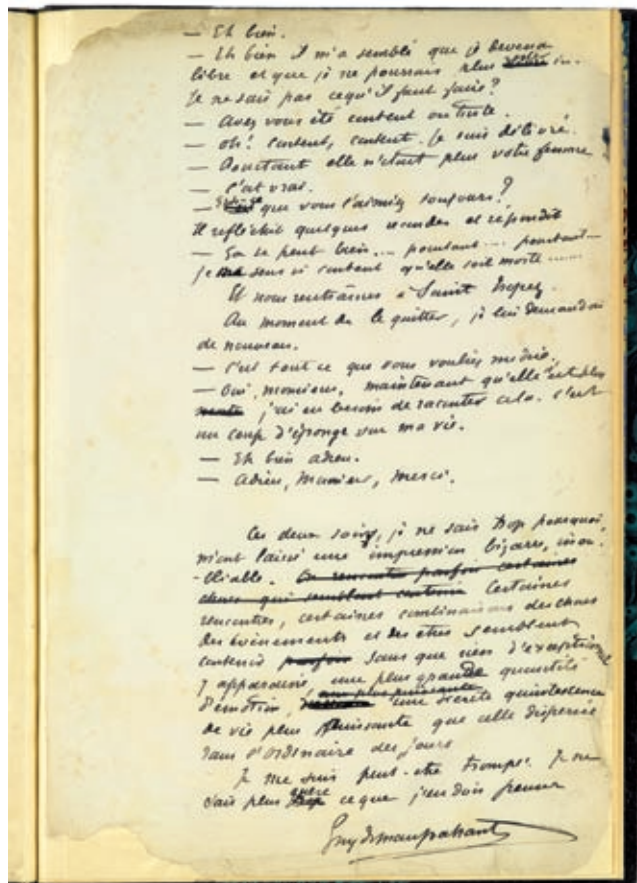 — Eh bien.
— Eh bien il m'a semblé que je devenais
libre et que je ne pourrais plus
Je ne sais pas ce qu'il faut faire?
— Avez vous été content ou triste.
— Oh! content, content. Je suis délivré.
— Pourtant elle n'était plus votre femme
— C'est vrai.
— Est-ce que vous l'aimiez toujours?
Il réfléchit quelques secondes et répondit
— Ça se peut bien... pourtant... pourtant...
je me sens si content qu'elle soit morte......
Et nous rentrâmes à Saint Tropez.
Au moment de le quitter, je lui demandai
de nouveau.
— C'est tout ce que vous vouliez me dire.
— Oui, monsieur, maintenant qu'elle n'est plus
j'ai eu besoin de raconter cela. C'est
un coup d'éponge sur ma vie.
— Eh bien adieu.
— Adieu, Monsieur, merci.
Ces deux soirs, je ne sais trop pourquoi,
m'ont laissé une impression bizarre, inou-
-bliable. On rencontre parfois certaines
choses qui semblent contenir Certaines
rencontres, certaines combinaisons des choses
des événements et des êtres semblent
contenir parfois sans que rien d'exceptionnel
y apparaisse, une plus grande quantité
d'émotion, une secrète quintessence
de vie plus puissante que celle dispersée
dans l'ordinaire des jours
Je me suis peut-être trompé. Je ne
sais plus guère ce que j'en dois penser
Guy de Maupassant